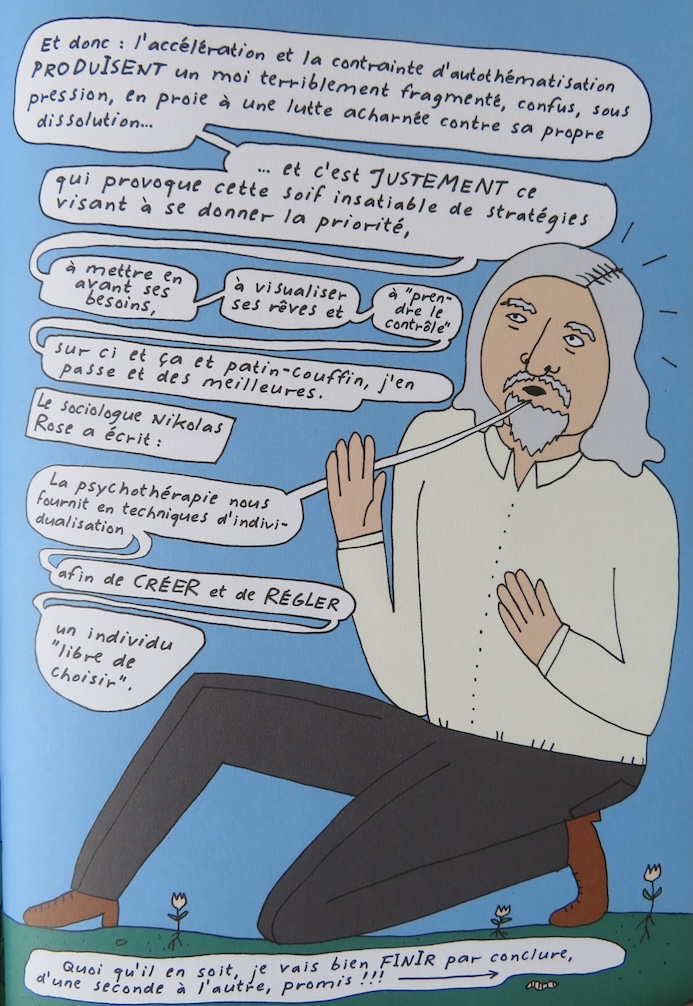 Et donc : l'accélération et la contrainte d'autothématisation
PRODUISENT un moi terriblement fragmenté, confus, sous
pression, en proie à une lutte acharnée contre sa propre
dissolution...
... et c'est JUSTEMENT ce
qui provoque cette soif insatiable de stratégies
visant à se donner la priorité,
à mettre en
avant ses
besoins,
à visualiser
ses rêves et
à "pren-
dre le
contrôle"
sur ci et ça et patin-couffin, j'en
passe et des meilleures.
Le sociologue Nikolas
Rose a écrit :
La psychothérapie nous
fournit en techniques d'indivi-
dualisation
afin de CRÉER et de RÉGLER
un individu
"libre de
choisir".
Quoi qu'il en soit, je vais bien FINIR par conclure,
d'une seconde à l'autre, promis !!!